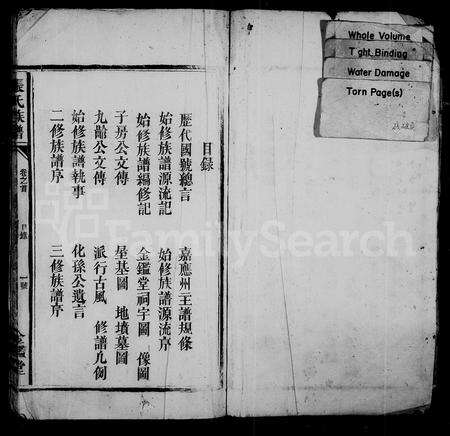 目錄
歷代國號總言 嘉應州主譜規條
始修族譜源流記 始修族譜源流序
始修族譜編修記 金鑑堂祠宇圖 像圖
子房公文傳 塋基圖 地墳墓圖
九齡公文傳 派行古風 修譜凡例
始修族譜執事 化孫公遺言
二修族譜序 三修族譜序
張氏族譜
卷之首
目錄
一號
金鑑堂
Whole Volume
Tight Binding
Water Damage
Torn Page(s)
FamilySearch